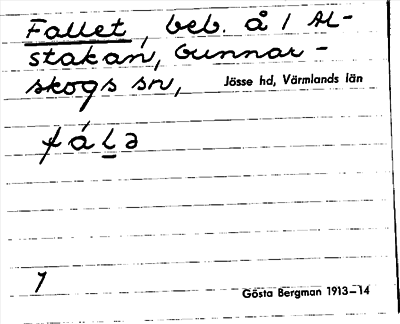 Fallet, beb. å 1 Al-
stakan, Gunnar-
skogs sn, Jösse hd, Värmlands län
fálə
7
Gösta Bergman 1913–14